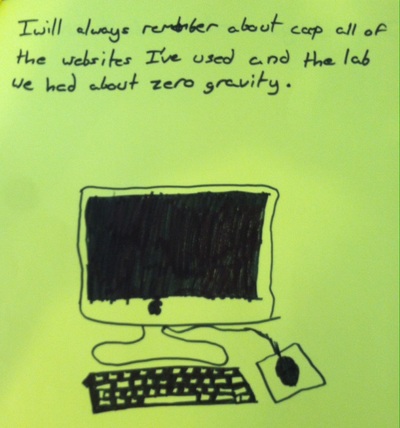 I will always remember about cap all of
the websites I've used and the lab
we had about zero gravity.